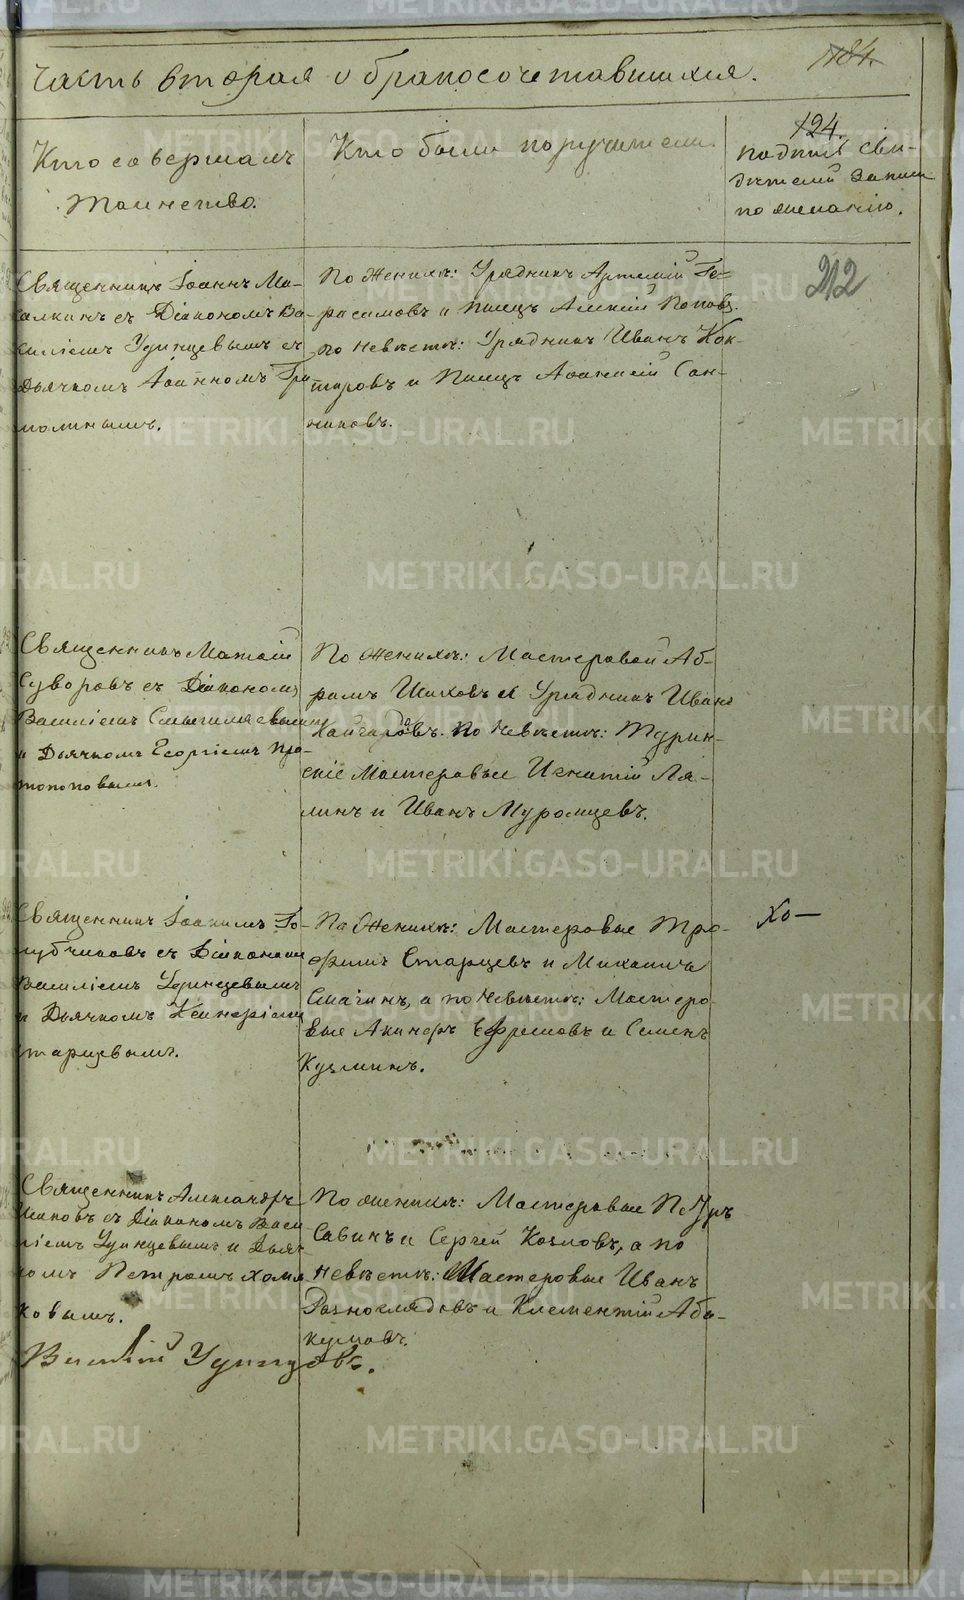 184.
Часть вторая о бракосочетавшихся.
124.
Кто совершалъ
Таинство.
Кто были поручители.
подпись сви-
дѣтелей записи
по желанію.
212
Священникъ Іоаннъ Ма-
лкинъ съ Діакономъ Ва-
силіемъ Удинцевымъ съ
Дьячкомъ Іоанномъ
По Женихѣ: Урядникъ Артемій Ге-
расимовъ и Писецъ Алексій Поповъ.
по Невѣстѣ: Урядникъ Иванъ Кок-
шаровъ и Писецъ Афанасій Сан-
никовъ.
Священникъ Матфій
Суворовъ съ Діакономъ
Василіемъ
и Дьячкомъ Георгіемъ Про-
топоповымъ.
По Женихѣ: Мастеровой Аб-
рамъ Шиховъ и Урядникъ Иванъ
Кайгородовъ. По Невѣстѣ: Турин-
скіе Мастеровые Игнатій Ля-
линъ и Иванъ Муромцевъ.
Священникъ Іоакимъ Го-
лубчиковъ съ Діакономъ
Василіемъ Удинцевымъ
и Дьячкомъ
Старцевымъ.
По Женихѣ: Мастеровые Тро-
фимъ Старцевъ и Михаилъ
Смагинъ, а по Невѣстѣ: Мастеро-
вые Акинфъ Ефремовъ и Семенъ
Кузминъ.
Хо—
Священникъ Александръ
съ Діакономъ Васи-
ліемъ Удинцевымъ и Дьяч-
комъ Петромъ Хомя
ковымъ.
По женихѣ: Мастеровые Петръ
Савинъ и Сергей Козловъ, а по
Невѣстѣ: Мастеровые Иванъ
Разноглядовъ и Климентій Аба-
кумовъ.
Василій Удинцовъ.
METRIKI.GASO-URAL.RU